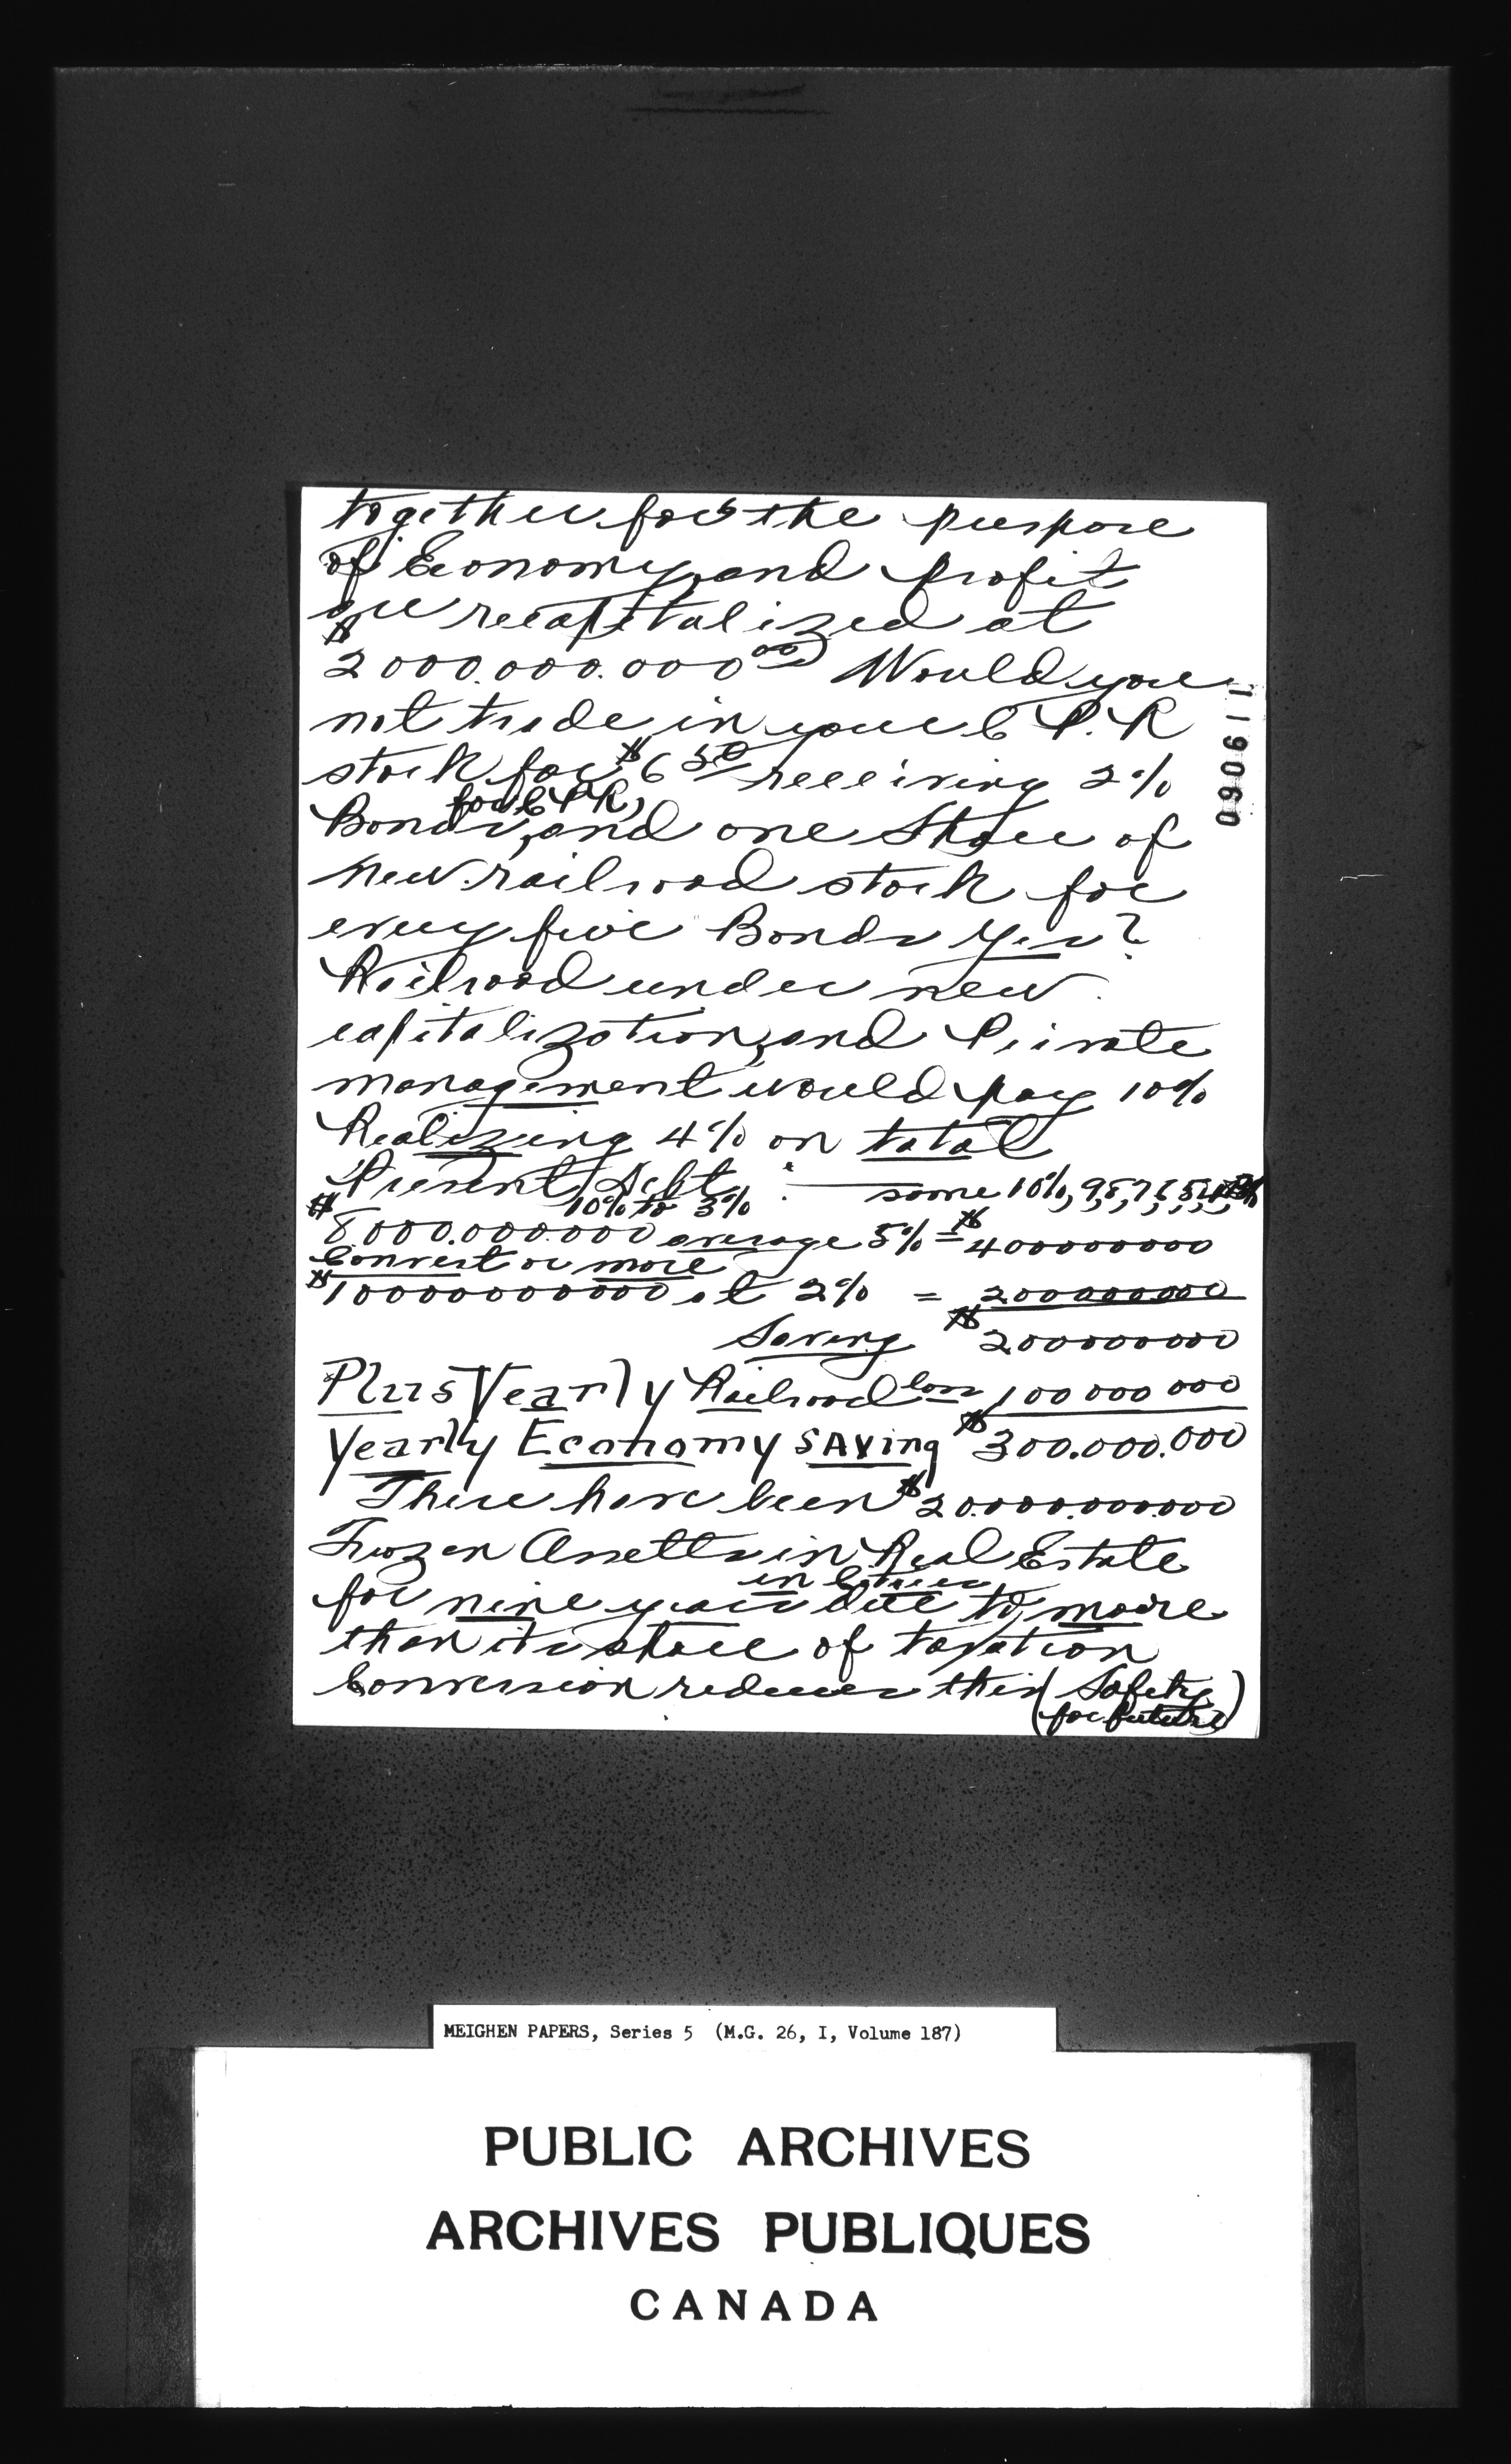 together for the purpose
of Economy, and profit
are recapitalized at
$2000.000.000 00 Would you
not trade in your C P. R
stock for $6 50 receiving 2%
for C P R,
Bonds, and one Share of
new railroad stock for
every five Bonds Yes?
Railroad under new
capitalization, and Private
management would pay 10%
Realizing 4% on total
Present Debt: some 10%, 9,8,7,6,5,4,
10% to 3%
$8000.000.000 average 5% = $400000000
Convert or more
$10000000000 at 2% = 200000000
Saving $200000000
Plus Yearly Railroad loss 100 000 000
Yearly Economy SAVing $300.000.000
There have been $20.000.000.000
Frozen Assetts in Real Estate
in Cities
for nine years due to more
than its share of taxation
Conversion reduces this (Safety
for future)
090611
MEIGHEN PAPERS, Series 5 (M.G. 26, I, Volume 187)
PUBLIC ARCHIVES
ARCHIVES PUBLIQUES
CANADA